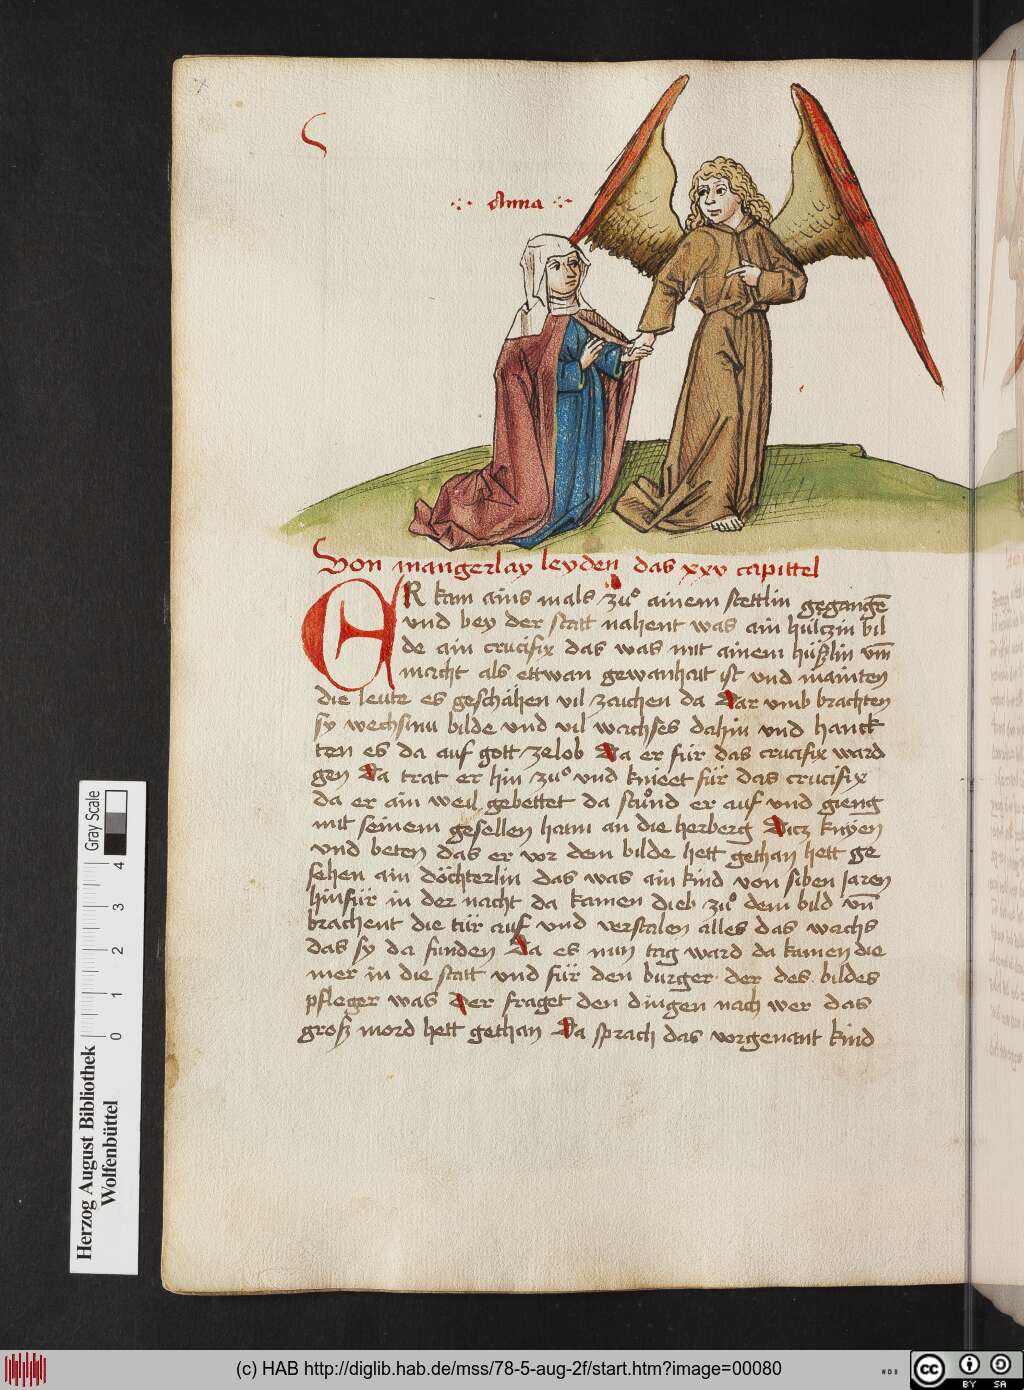 Anna
Von mangerlay leyden das xxv capittel
ER kam ains mals zuͦ ainem stettlin gegangē
vnd bey der statt nahent was ain hültzin bil
de ain crucifix das was mit ainem hüßlin vm̄
macht als ettwan gewanhait ist vnd mainten
die leute es geschähen vil zaichen da Dar vmb brachten
sy wechsinu bilde vnd vil wachses dahin vnd hanck
ten es da auf gott zelob Da er für das crucifix ward
gen Da trat er hin zuͦ vnd knieet für das crucifix
da er ain weil gebettet da stuͦnd er auf vnd gieng
mit seinem gesellen haim an die herberg Ditz knyen
vnd beten das er vor dem bilde hett gethan hett ge
sehen ain döchterlin das was ain kind von siben jaren
hinfür in der nacht da kamen dieb zuͦ dem bild vn̄
brachent die tür auf vnd verstalen alles das wachs
das sy da funden Da es nun tag ward da kamen die
mer in die statt vnd für den burger der des bildes
pfleger was Der fraget den dingen nach wer das
groß mord hett gethan Da sprach das vorgenant kind
Gray Scale
4 3 2 1 0
Herzog August Bibliothek
Wolfenbüttel
(c) HAB http://diglib.hab.de/mss/78-5-aug-2f/start.htm?image=00080
WDB
cc BY SA